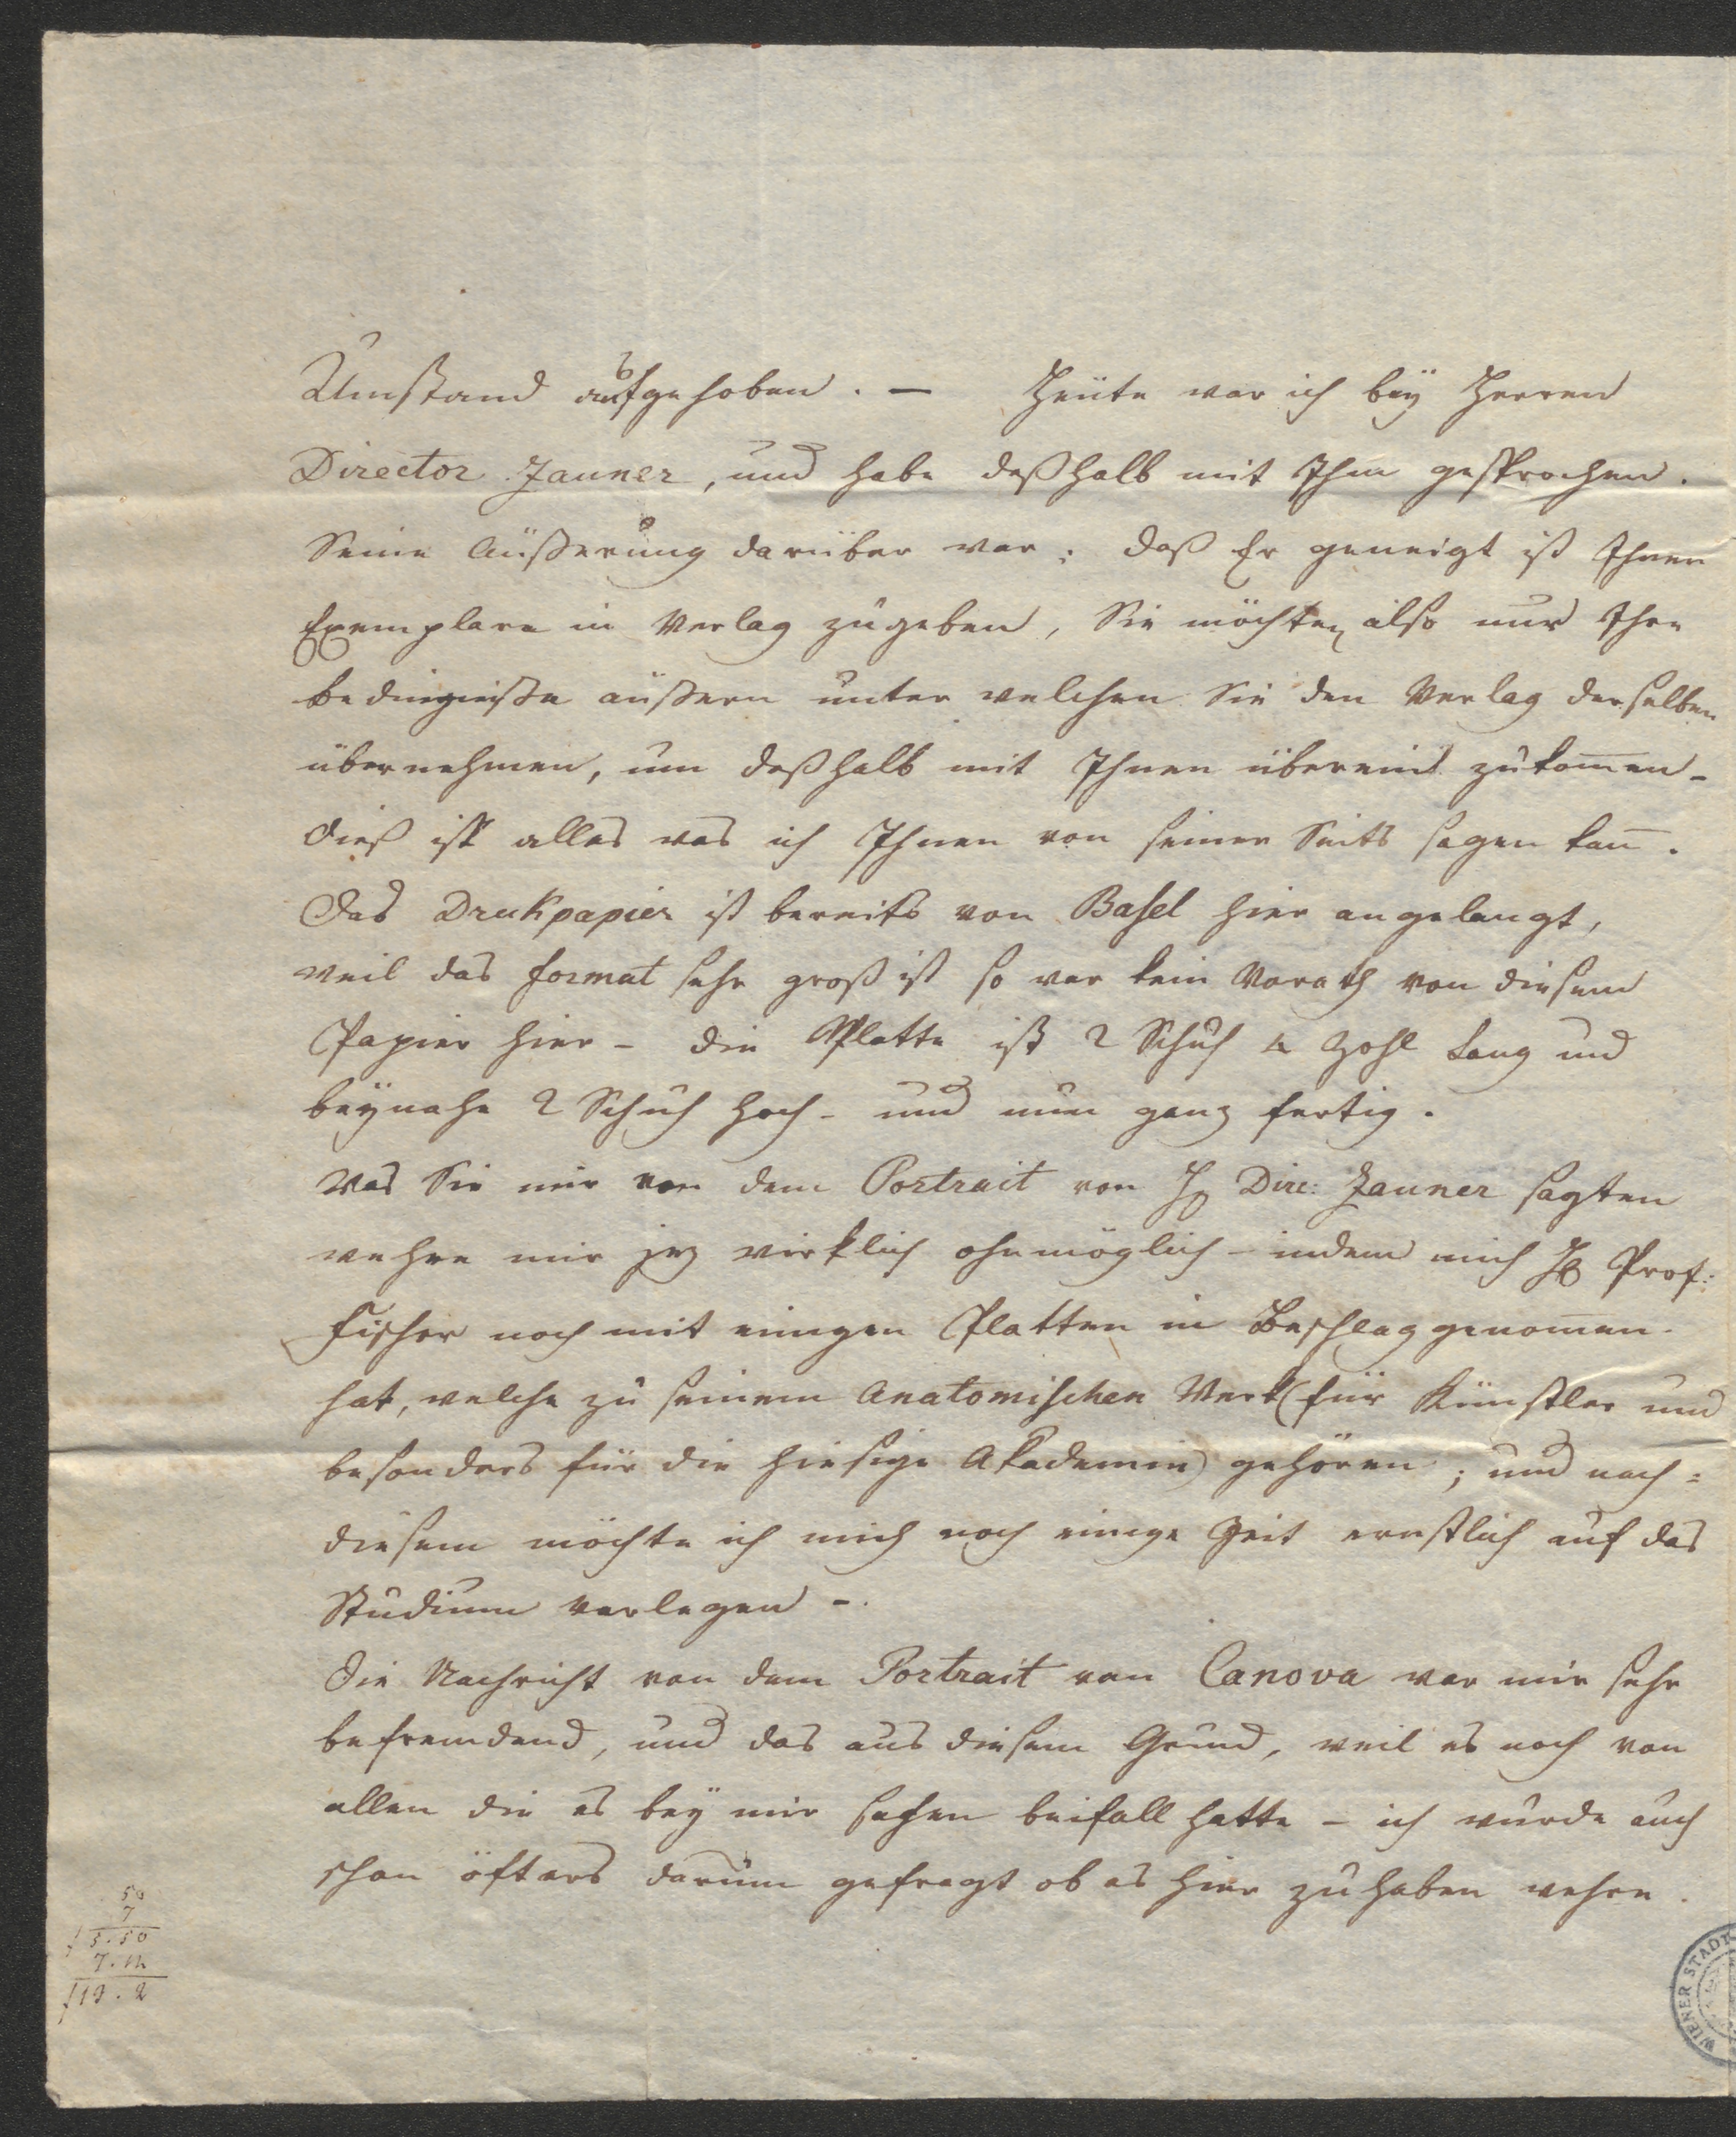 Umstand aufgehoben. – Heüte war ich beÿ Herren
Director Zauner, und habe deßhalb mit Ihm gesprochen.
Seine Äüßerung darüber war: daß Er geneigt ist Ihnen
Exemplare in Verlag zugeben, Sie möchten also nur Ihre
bedingniße äüßern unter welchen Sie den Verlag derselben
übernehmen, um deßhalb mit Ihnen übereins zukom̅en –
dieß ist alles was ich Ihnen von seiner Seits sagen kan̅.
Das Drukpapier ist bereits von Basel hier angelangt,
weil das format sehr groß ist so war kein Vorath von diesem
Papier hier – die Platte ist 2 Schuh 4 Zohl lang und
beÿnahe 2 Schuh hoch – und nun ganz fertig.
Was Sie mir von dem Portrait von H Dire: Zauner sagten
wehre mir jez wirklich ohnmöglich – indem mich H Prof:
Fischer noch mit einigen Platten in Beschlag genom̅en
hat, welche zu seinem Anatomischen Werk (für Künstler und
besonders für die hiesige Akademie) gehören; und nach=
diesem möchte ich mich noch einige Zeit ernstlich auf das
Studium verlegen –.
Die Nachricht von dem Portrait von Canova war mir sehr
befremdend, und das aus diesem Grund, weil es noch von
allen die es beÿ mir sahen beifall hatte – ich wurde auch
schon öfters darum gefragt ob es hier zu haben wehre.
50
7
f 5.50
7.12
f 13.2
WIENER STADT